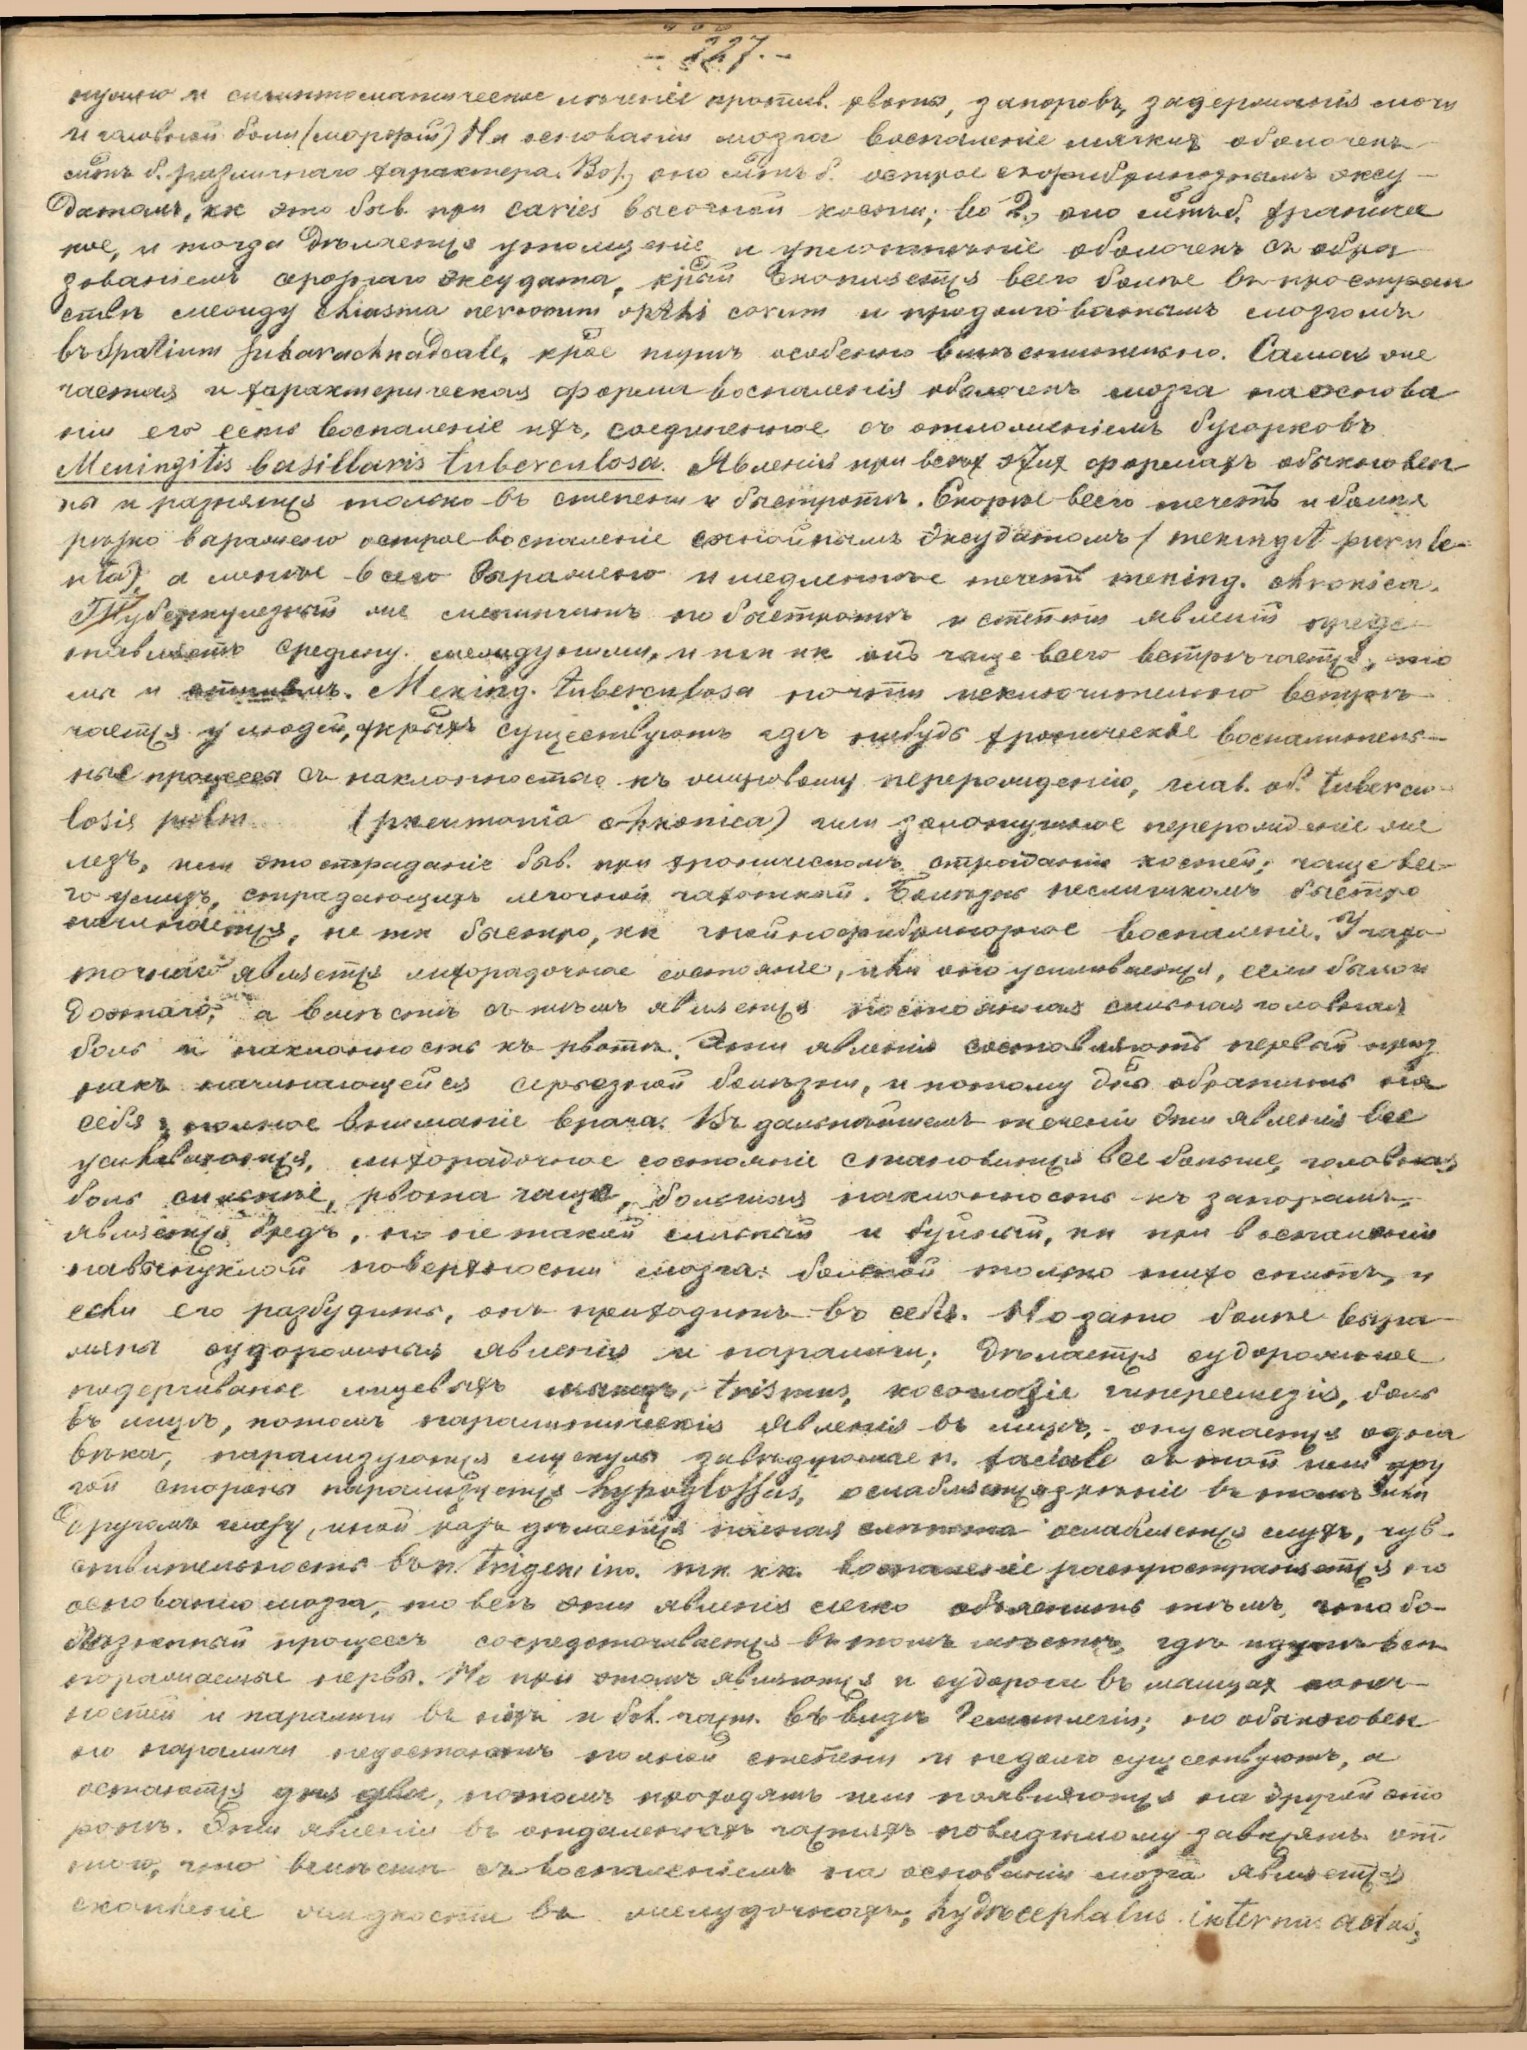 - 227. -
нужно и симптоматическое лечение против. рвоты, запоровъ, задержанія мочи
и головной боли (морфій) На основаніи мозга воспаленіе мягкихъ оболочекъ
мотъ б. различнаго характера. Во 1, оно мотъ б. острое с гнойфибринознымъ эксу-
датомъ, кк это быв. при caries височной кости; во 2, оно мотъ б. хрониче
кое, и тогда дѣлается утолщеніе и уплотненіе оболочекъ съ обра
зованіемъ серознаго эксудата, крый скопляется всего болѣе въ простран
ствѣ между chiasma nervorum opthi corum и продолговатымъ мозгомъ
въ Spatium subarachnadeale, крое тутъ особенно вмѣстительно. Самая же
частая и характерическая форма воспаленія оболочекъ мозга на основа
ніи его есть воспаленіе ихъ, соединенное съ отложеніемъ бугорковъ
Meningitis basillaris tuberculosa. Явленія при всехъ этихъ формахъ обыкновен
ны и разнятся только въ степени и быстротѣ. Скорѣе всего течетъ и болѣе
рѣзко выражено острое воспаленіе с гнойнымъ эксудатомъ (meningit purule-
nta), а менѣе всего выражено и медленнѣе течетъ mening. chronica.
Туберкулезный же менингитъ по быстротѣ и степени явленій пред-
ставляетъ средину между ними, и так кк онъ чаще всего встрѣчается, то
мы и опишемъ. Mening. tuberculosa почти исключительно встрѣ-
чается у людей, у крыхъ существуютъ гдѣ нибудь хроническіе воспалитель-
ные процессы съ наклонностью къ творожному перерожденію, глав. об. tubercu-
losis pulm. (pneumonia chronica) или золотушное перерожденіе же
лезъ, или это страданіе быв. при хроническомъ страданіи костей; чаще все-
го у лицъ, страдающихъ легочной чахоткой. Болѣзнь не слишкомъ быстро
начинается, не тк быстро, кк гнойнофибринозное воспаленіе. У чахо
точнаго является лихорадочное состояніе, или оно усиливается, если было и
до того, а вмѣстѣ съ тѣмъ является постоянная сильная головная
боль и наклонность къ рвотѣ. Эти явленія составляютъ первый приз
накъ начинающейся серьозной болѣзни, и потому дны обратить на
себя полное вниманіе врача. Въ дальнѣйшемъ теченіи эти явленія все
усиливаются, лихорадочное состояніе становится все больше, головная
боль сильнѣе, рвота чаще, большая наклонность къ запорамъ,
является бредъ, но не такой сильный и буйный, кк при воспаленіи
на выпуклой поверхности мозга: больной только тихо спитъ, и
если его разбудить, онъ приходитъ въ себя. Но зато болѣе выра
жены судорожныя явленія и параличи; дѣлается судорожное
подергиваніе лицевыхъ мышцъ, trismus, косоглазіе гиперестезія, боль
въ лицѣ, потомъ паралитическія явленія въ лицѣ, - опускается одна
вѣка, парализуются мускулы завѣдуюмые n. faciale съ той или дру
гой стороны парализуется hypoglossus, ослабляется зрѣніе въ томъ или
другомъ глазу, иной разъ дѣлается полная слѣпота ослабляется слухъ, чув-
ствительность въ n. trigemino. тк кк воспаленіе распространяется по
основанію мозга, то всѣ эти явленія легко объяснить тѣмъ, что бо-
лѣзненный процессъ сосредоточивается въ томъ мѣстѣ, гдѣ идутъ всѣ
поражаемые нервы. Но при этомъ являются и судороги въ мышцах конеч-
ностей и параличи въ нихъ и бол. част. въ видѣ гемиплегіи; но обыкновен
но параличи недостигаютъ полной степени и недолго существуютъ, а
остаются дня два, потомъ проходятъ или появляются на другой сто
ронѣ. Эти явленія въ отдаленныхъ частяхъ повидимому зависятъ от
того, что вмѣстѣ съ воспаленіемъ на основаніи мозга является
скопленіе жидкости въ желудочкахъ, hydrocephalus internus acutus,